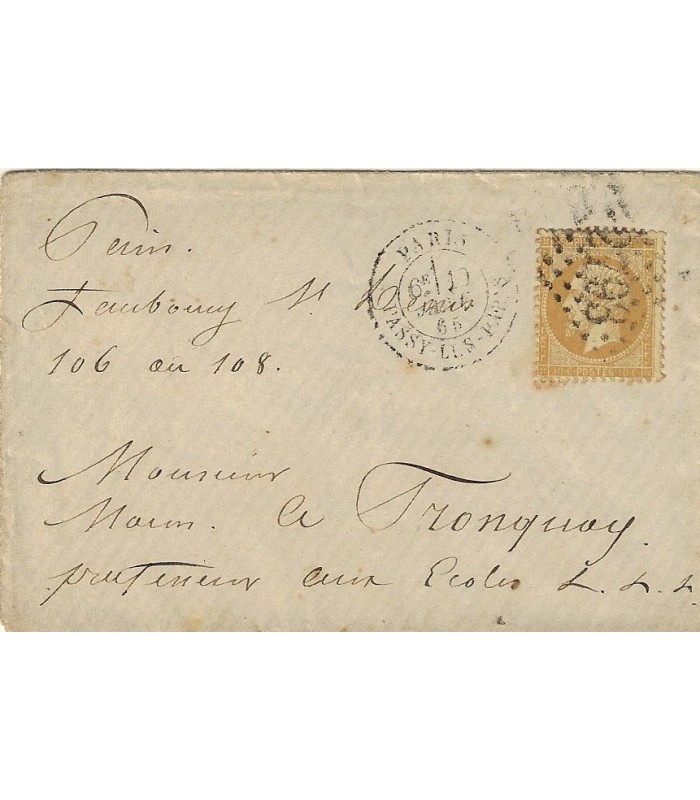 Paris.
Faubourg St Denis
106 ou 108.
PARIS
6E
65
PASSY-LES-PARIS
POSTES
Monsieur
Le Tronquoy
professeur aux Ecoles